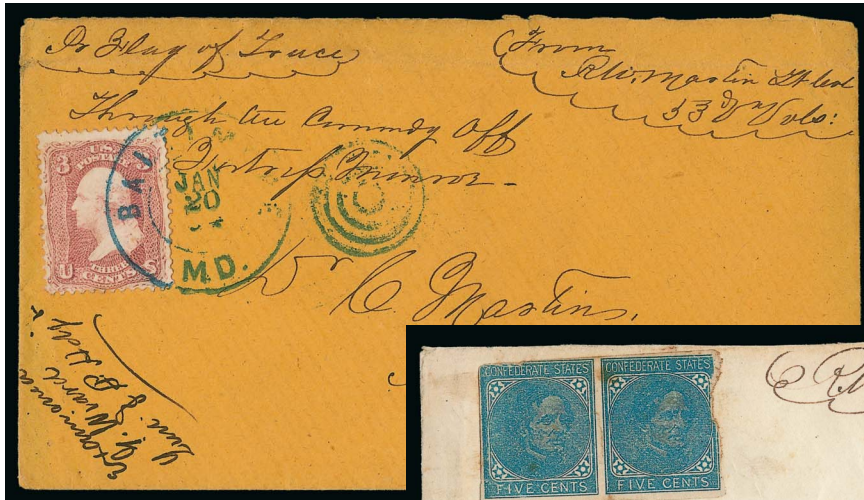 Pr Flag of Truce
From
R.W. Martin Lt Col
53d Va Vols:
Through the Commdg Off
Fortress Monroe -
3 U.S. 3
POSTAGE
U THREE S
CENTS
BALT
JAN
20
M.D.
Dr C Martin,
Examined
CONFEDERATE STATES
FIVE CENTS
CONFEDERATE STATES
FIVE CENTS